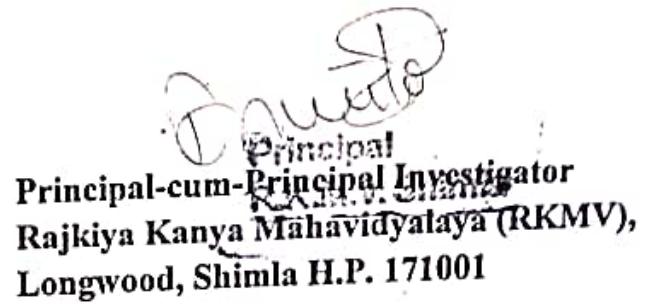 Principal
Principal-cum-Principal Investigator
Rajkiya Kanya Mahavidyalaya (RKMV),
Longwood, Shimla H.P. 171001